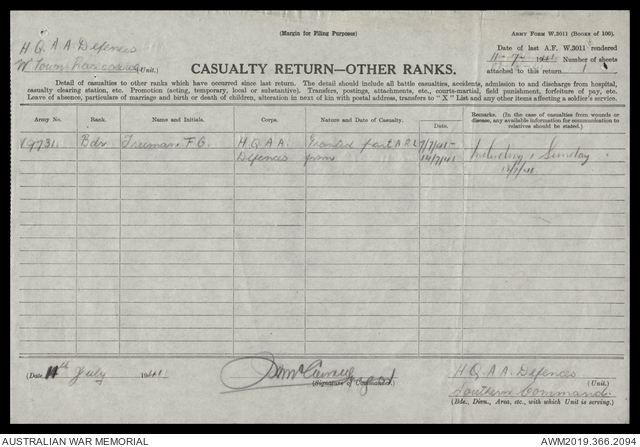 (Margin for Filing Purposes)
ARMY FORM W.3011 (BOOKS OF 100).
H Q A A Defences
W' Town Racecourse (Unit.)
Date of last A.F. W.3011 rendered
Number of sheets
attached to this return 1
CASUALTY RETURN—OTHER RANKS.
Detail of casualties to other ranks which have occurred since last return. The detail should include all battle casualties, accidents, admission to and discharge from hospital,
casualty clearing station, etc. Promotion (acting, temporary, local or substantive). Transfers, postings, attachments, etc., courts-martial, field punishment, forfeiture of pay, etc.
Leave of absence, particulars of marriage and birth or death of children, alteration in next of kin with postal address, transfers to "X" List and any other items affecting a soldier's service.
Army No. Rank. Name and Initials. Corps. Nature and Date of Casualty. Date. Remarks. (In the case of casualties from wounds or
disease, any available information for communication to
relatives should be stated.)
V9731 Bdr Freeman F.G. H Q A A Granted part A R L 7/7/41-
Defences from 14/7/41
Including 1 Sunday
13/7/41
(Date 11th July 1941)
(Signature of Commander.)
H Q A A Defences
(Unit.)
Southern Command
(Bde., Divn., Area, etc., with which Unit is serving.)
AUSTRALIAN WAR MEMORIAL
AWM2019.366.2094